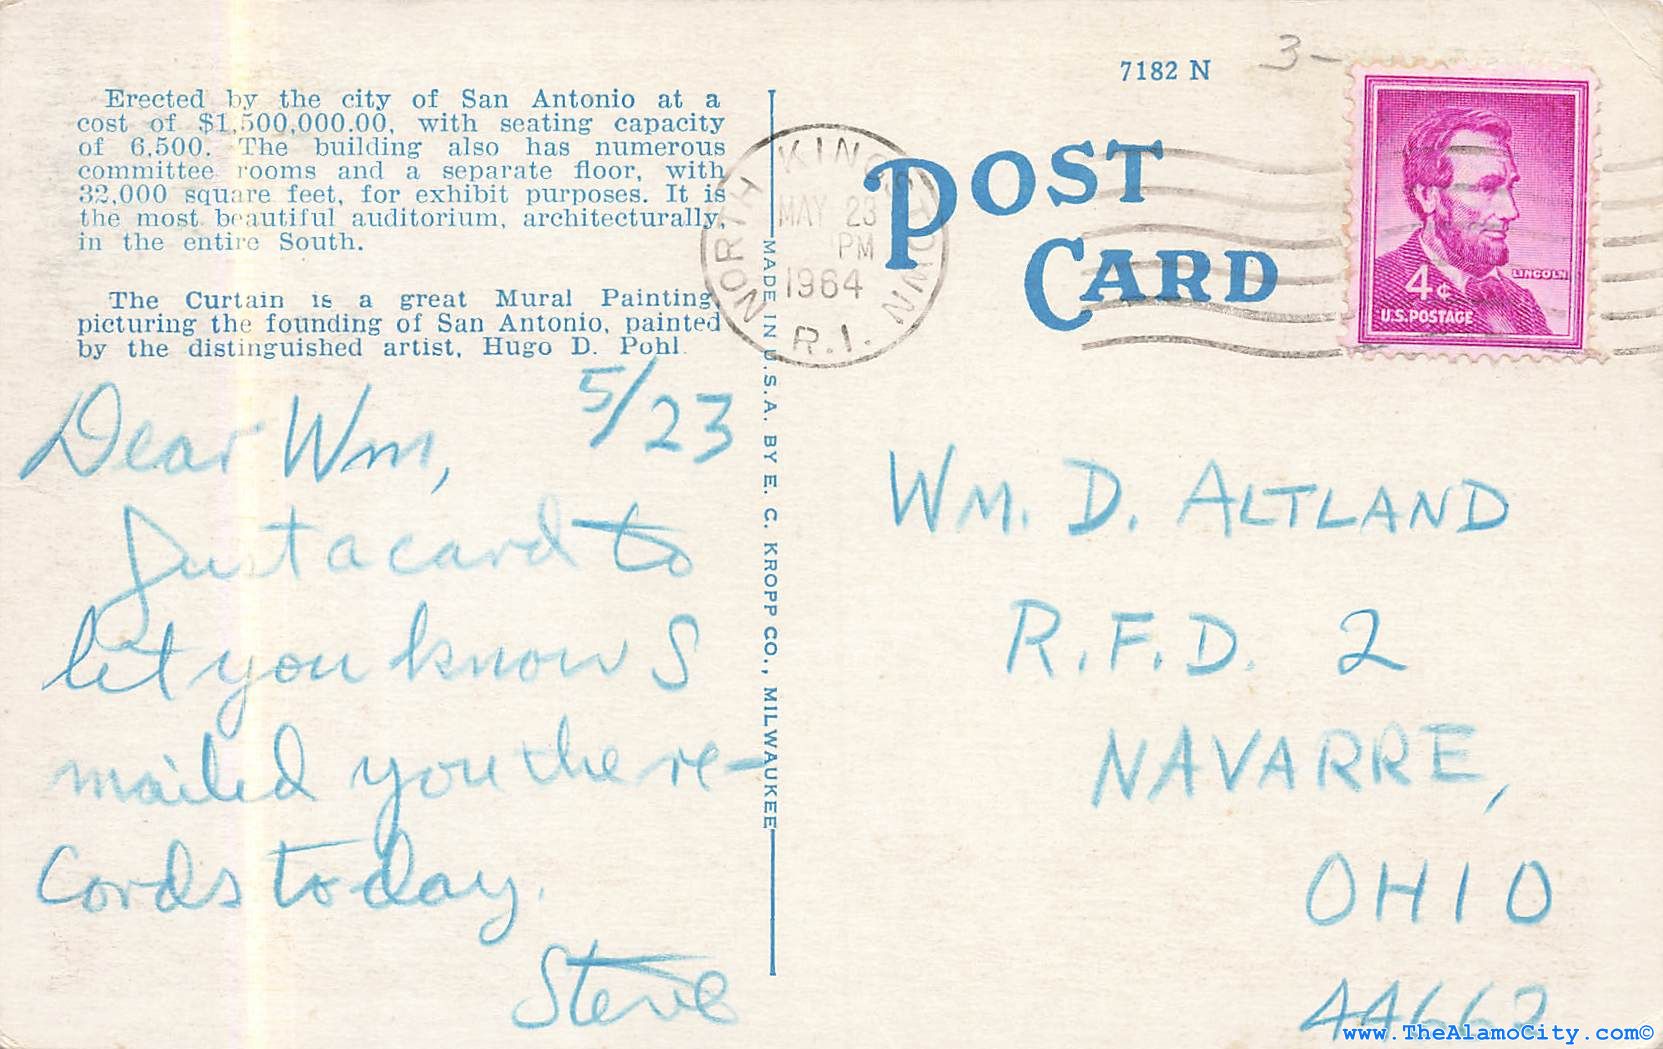 Erected by the city of San Antonio at a
cost of $1,500,000.00, with seating capacity
of 6,500. The building also has numerous
committee rooms and a separate floor, with
32,000 square feet, for exhibit purposes. It is
the most beautiful auditorium, architecturally,
in the entire South.
The Curtain is a great Mural Painting
picturing the founding of San Antonio, painted
by the distinguished artist, Hugo D. Pohl
5/23
Dear Wm,
Just a card to
let you know I
mailed you the re-
cords today.
Steve
MADE IN U.S.A. BY E. C. KROPP CO., MILWAUKEE
7182 N
3-
POST
CARD
NORTH KINGSTOWN
MAY 23
PM
1964
R.I.
LINCOLN
4¢
U.S. POSTAGE
WM. D. ALTLAND
R.F.D. 2
NAVARRE,
OHIO
44662
www.TheAlamoCity.com©